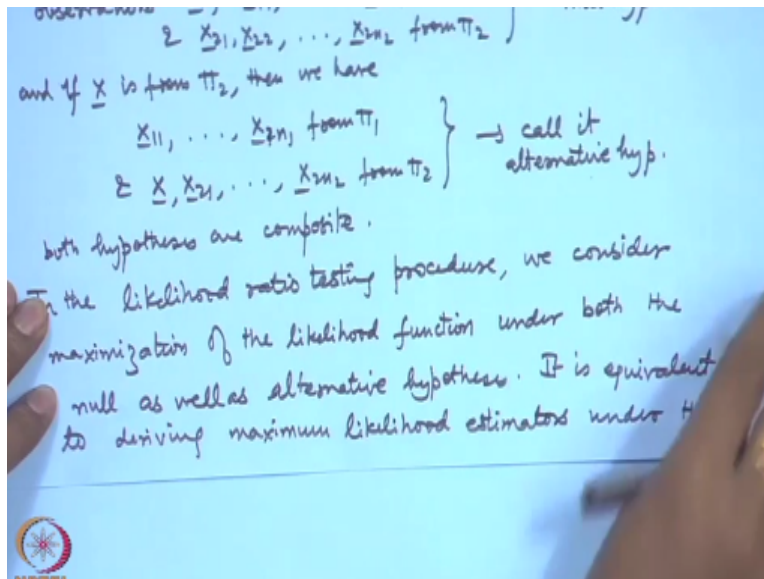 & X21, X22, ..., X2n2 from π2 }
and if X is from π2, then we have
X11, ..., X2n1 from π1
& X, X21, ..., X2n2 from π2 } → call it alternative hyp.
both hypotheses are composite.
In the likelihood ratio testing procedure, we consider
maximization of the likelihood function under both the
null as well as alternative hypotheses. It is equivalent
to deriving maximum likelihood estimators under